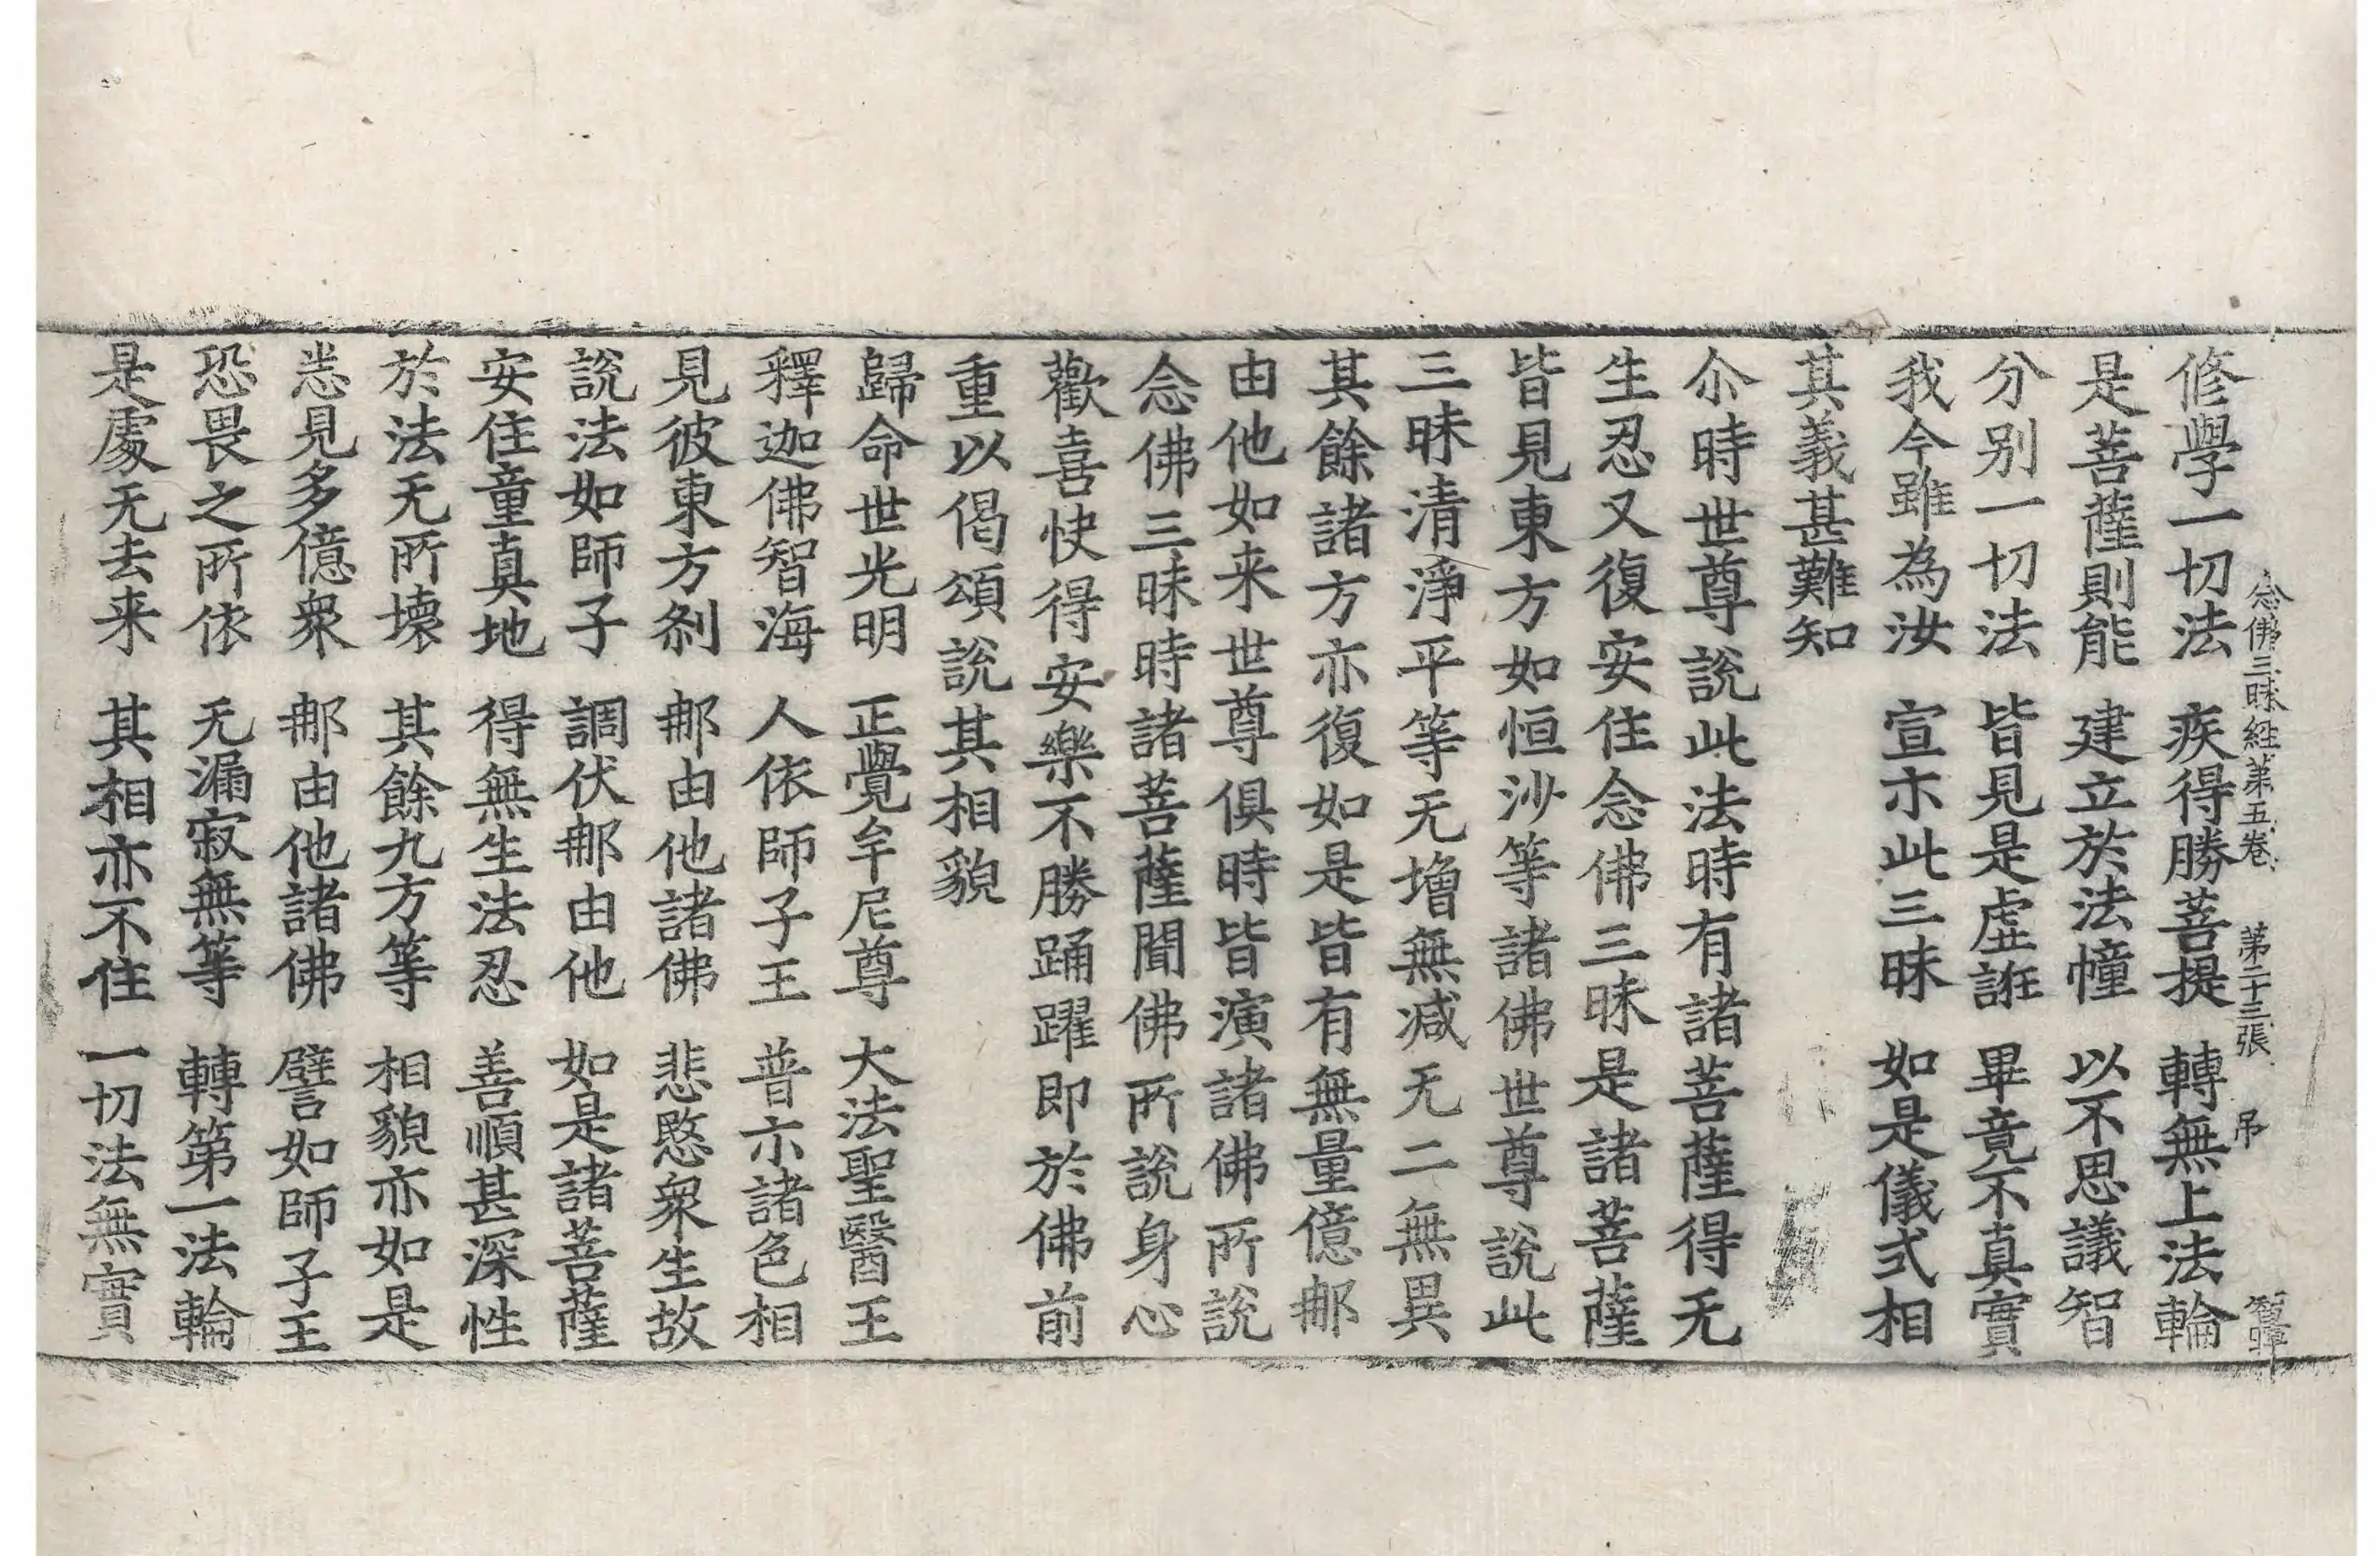 修學一切法　疾得勝菩提　轉無上法輪
念佛三昧經第五卷　第二十三張　吊
是菩薩則能　建立於法幢　以不思議智
分别一切法　皆見是虛誑　畢竟不真實
我今雖為汝　宣示此三昧　如是儀式相
其義甚難知
尒時世尊說此法時有諸菩薩得无
生忍又復安住念佛三昧是諸菩薩
皆見東方如恒沙等諸佛世尊說此
三昧清淨平等无增無減无二無異
其餘諸方亦復如是皆有無量億那
由他如来世尊俱時皆演諸佛所說
念佛三昧時諸菩薩聞佛所說身心
歡喜快得安樂不勝踊躍即於佛前
重以偈頌說其相貌
歸命世光明　正覺牟尼尊　大法聖醫王
釋迦佛智海　人依師子王　普示諸色相
見彼東方剎　那由他諸佛　悲愍衆生故
說法如師子　調伏那由他　如是諸菩薩
安住童真地　得無生法忍　善順甚深性
於法无所壞　其餘九方等　相貌亦如是
恙見多億衆　那由他諸佛　譬如師子王
恐畏之所依　无漏寂無等　轉第一法輪
是處无去来　其相亦不住　一切法無實